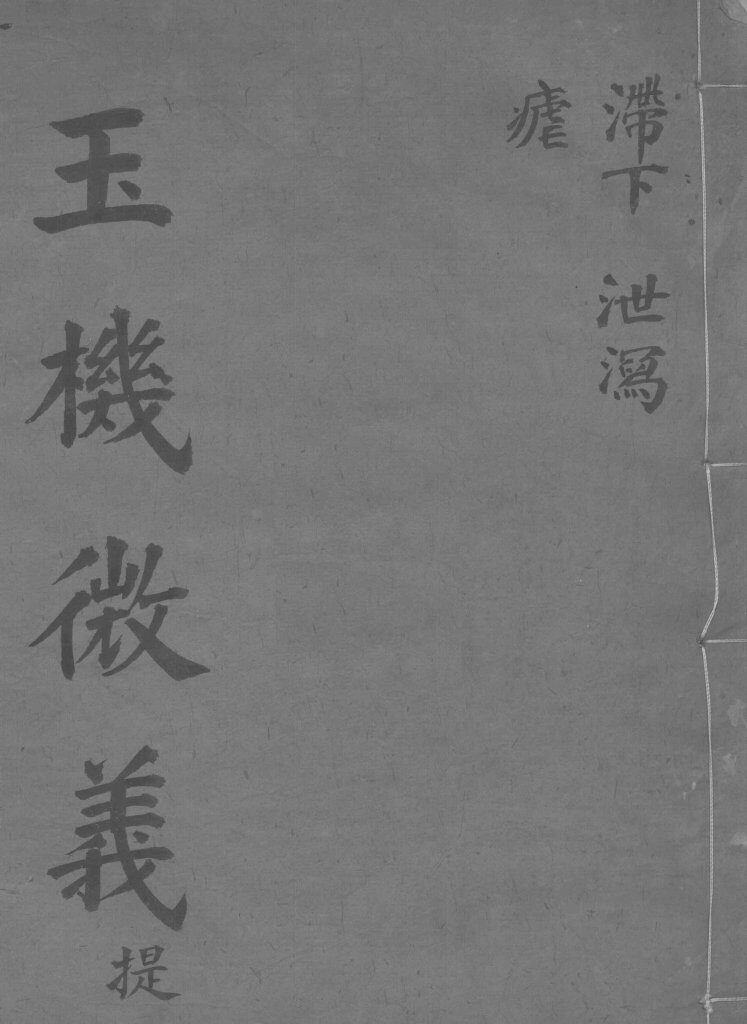 滯下 泄瀉
瘧
玉機微義 提